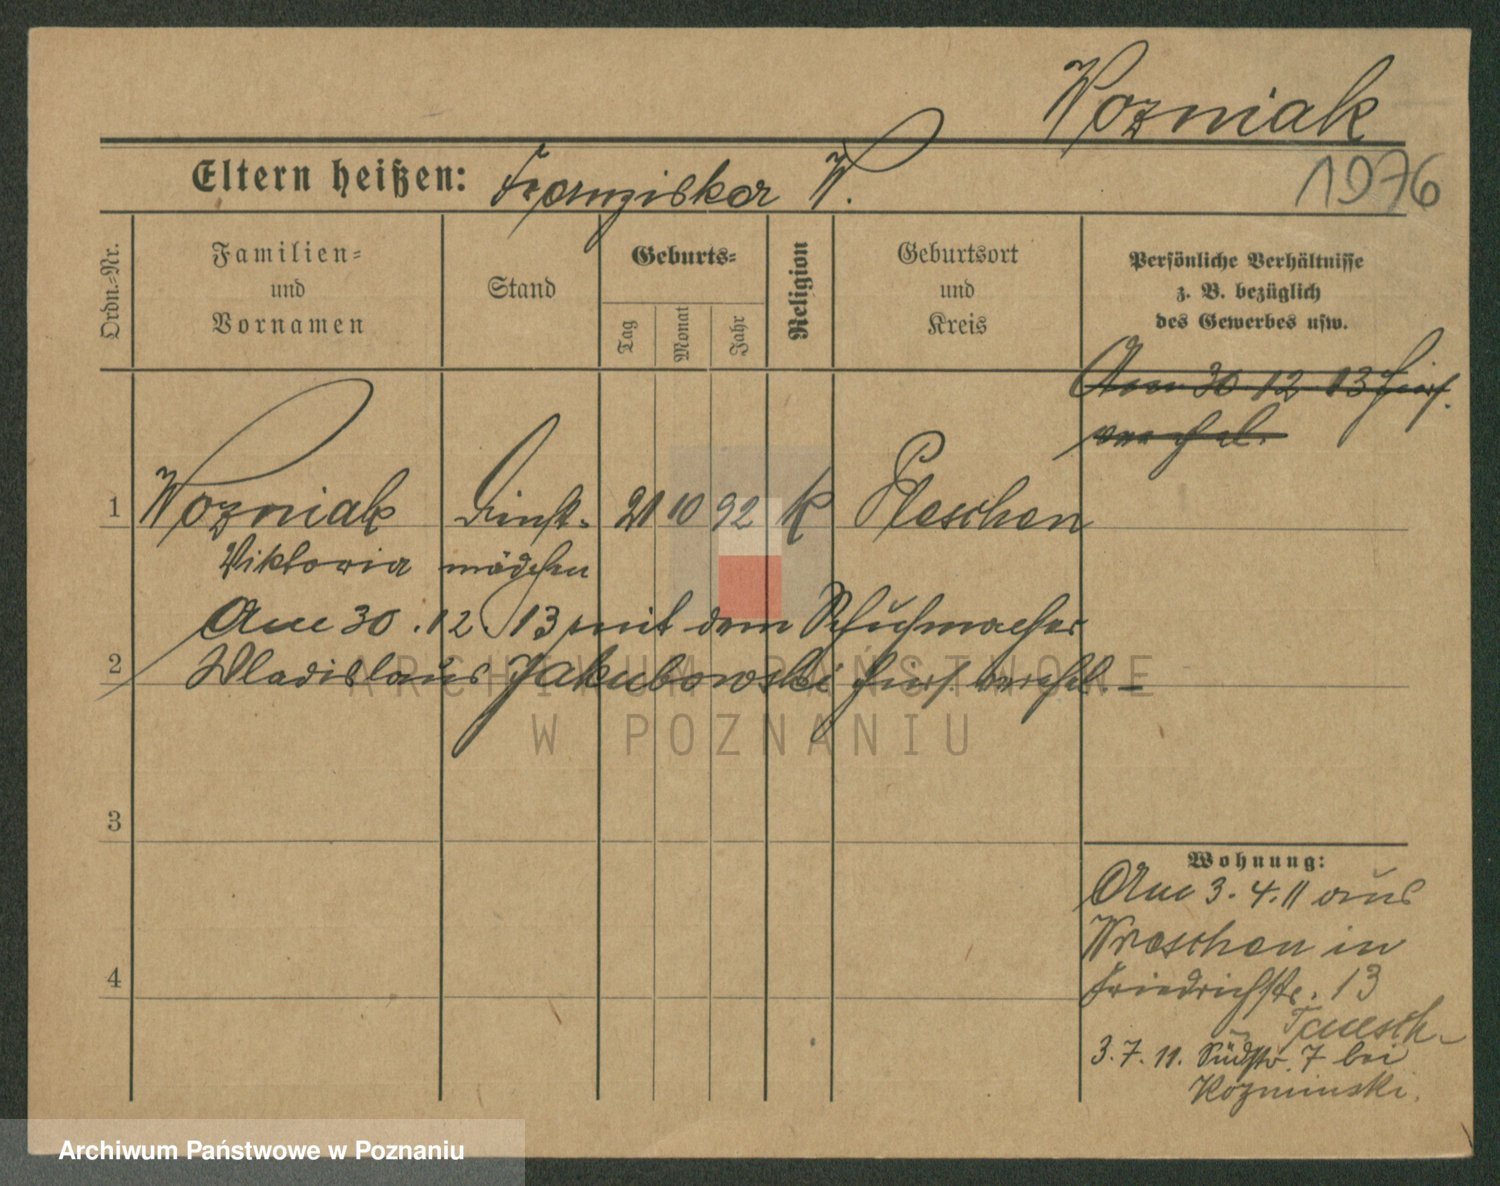 Wozniak
1976
Eltern heißen: Franziska W.
Ordn.-Nr.
Familien-
und
Vornamen
Stand
Geburts-
Tag
Monat
Jahr
Religion
Geburtsort
und
Kreis
Persönliche Verhältnisse
z. B. bezüglich
des Gewerbes usw.
Am 30 12 13 hier
verehel.
1 Wozniak Dienst- 21 10 92 K Pleschen
Viktoria mädchen
Am 30.12.13 mit dem Schuhmacher
2 Wladislaus Jakubowski hier verehel. –
ARCHIWUM PAŃSTWOWE
W POZNANIU
3
4
Wohnung:
Am 3.4.11 aus
Wreschen in
Friedrichstr. 13
3.7.11. Südstr. 7 bei
Kozminski.
Archiwum Państwowe w Poznaniu